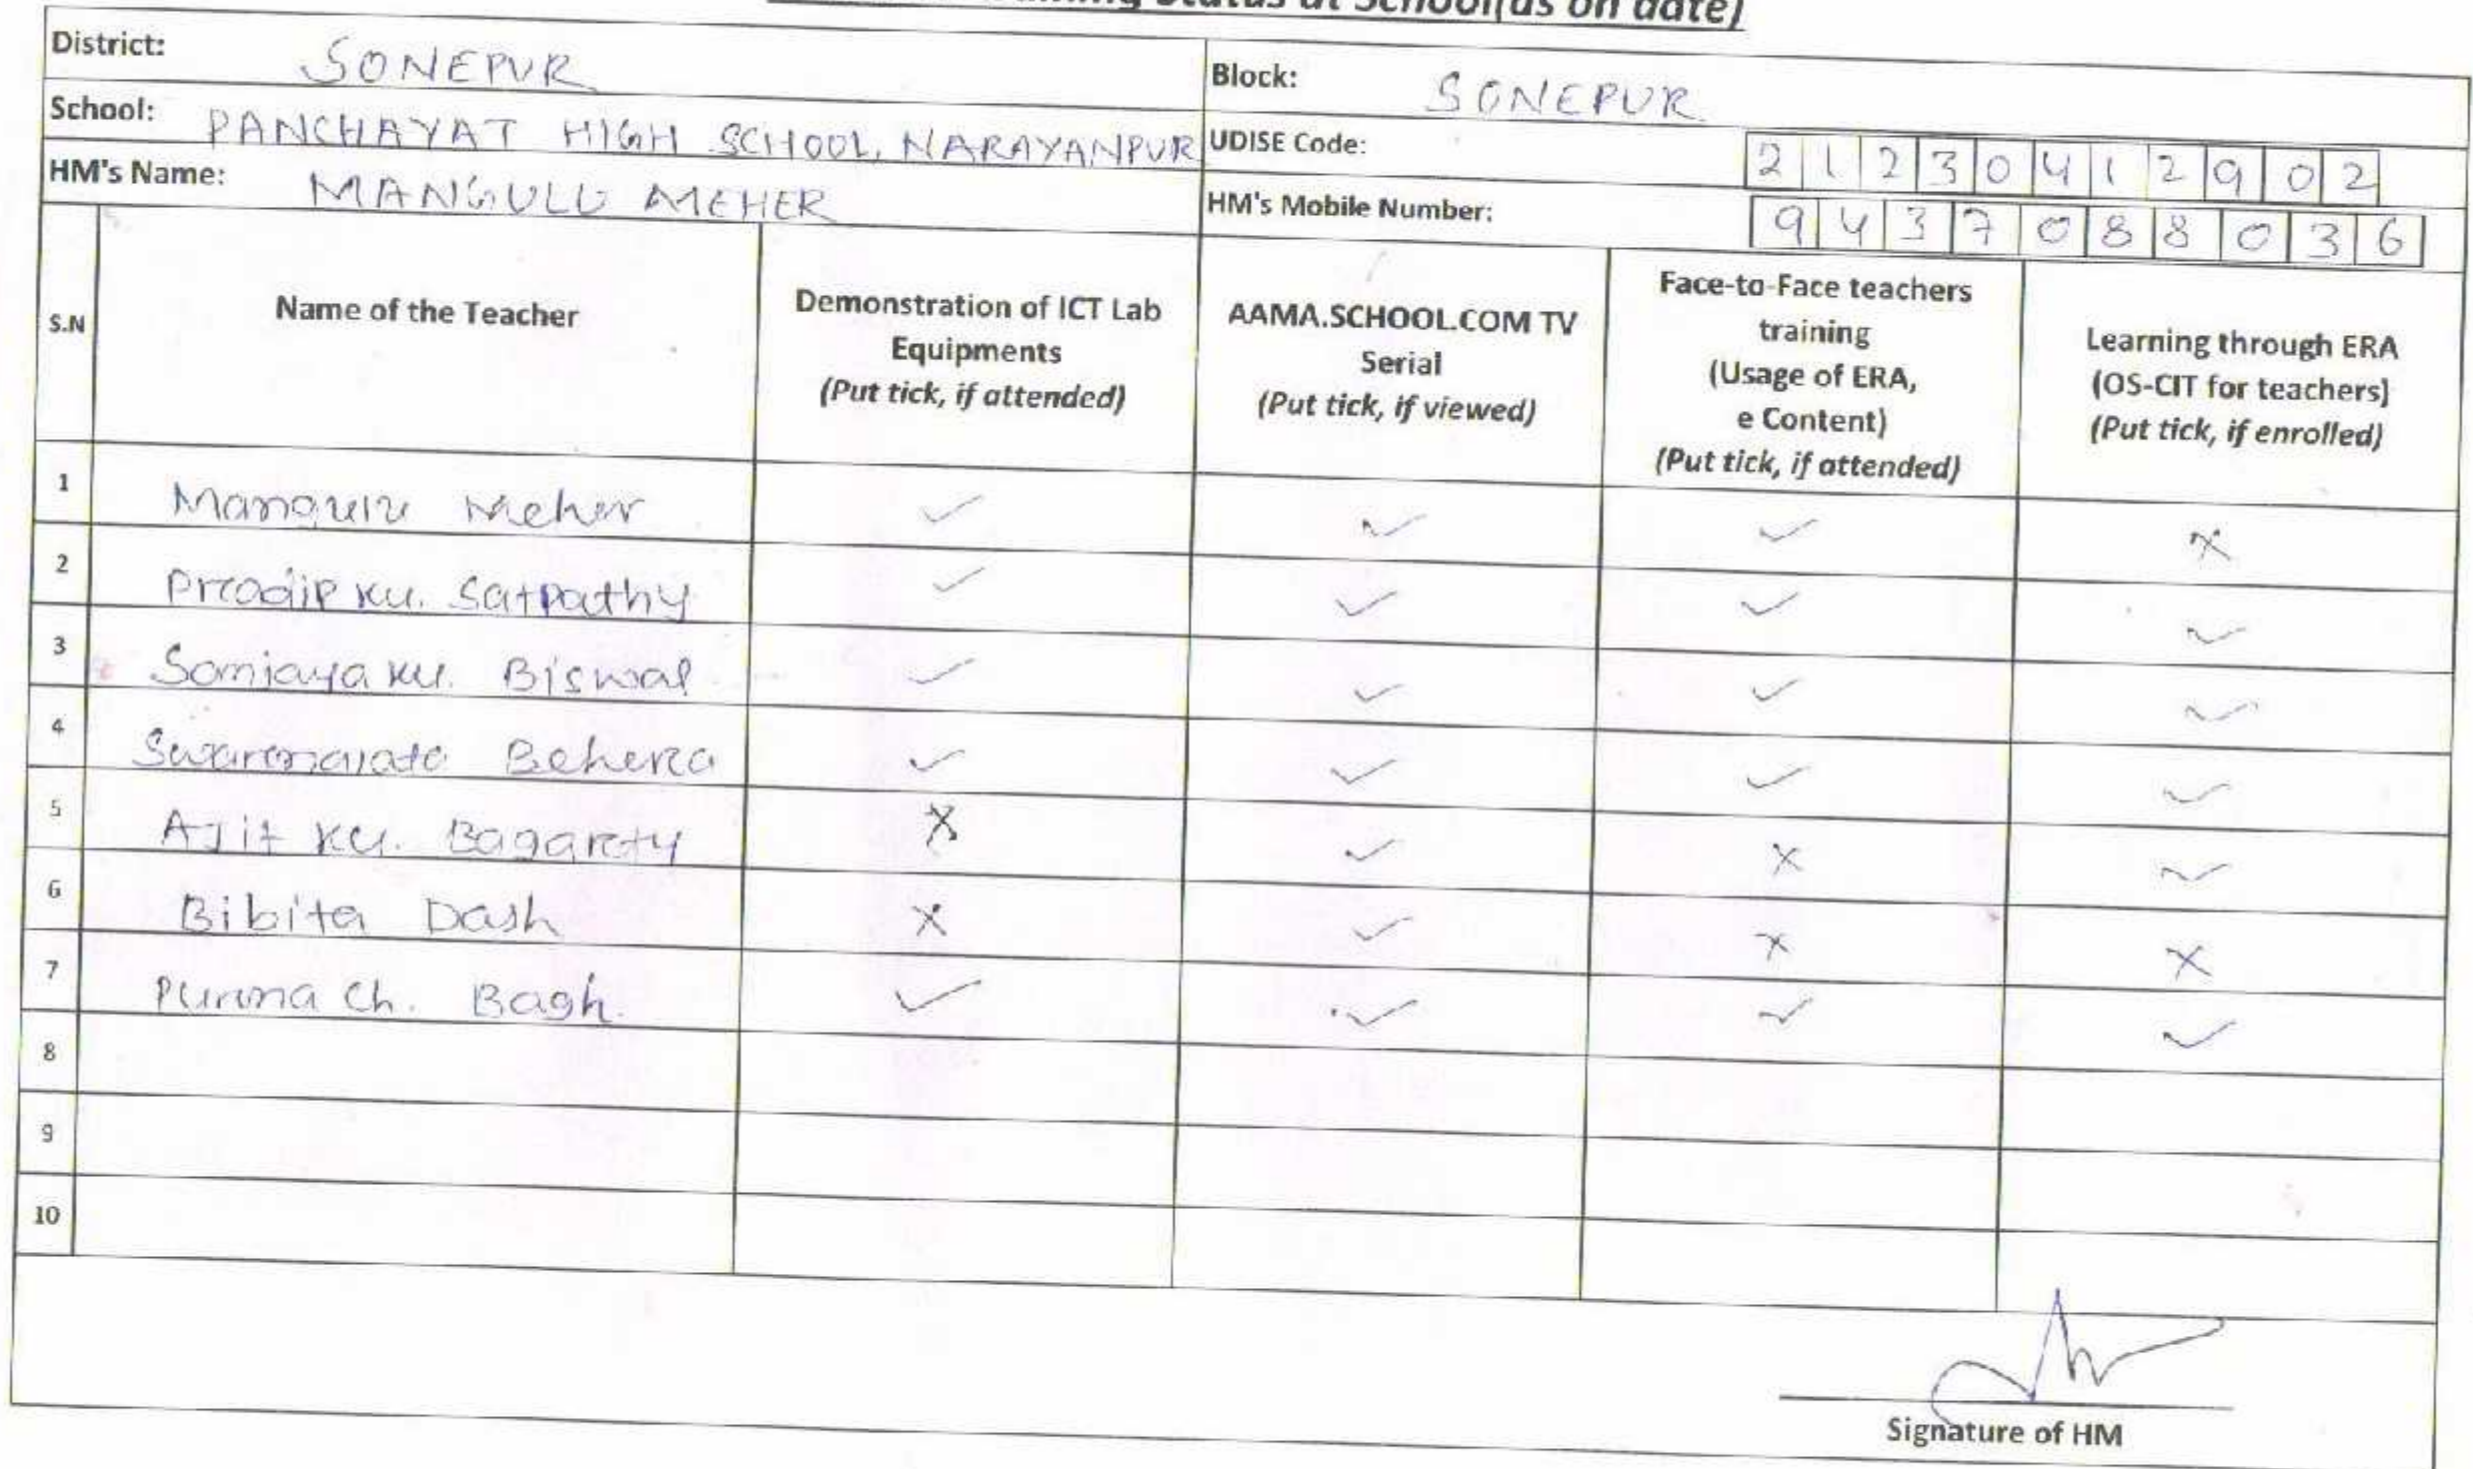 Status at School(as on date)
District: SONEPUR
Block: SONEPUR
School: PANCHAYAT HIGH SCHOOL, NARAYANPUR
UDISE Code: 21230412902
HM's Name: MANGULU MEHER
HM's Mobile Number: 9437088036
S.N
Name of the Teacher
Demonstration of ICT Lab
Equipments
(Put tick, if attended)
AAMA.SCHOOL.COM TV
Serial
(Put tick, if viewed)
Face-to-Face teachers
training
(Usage of ERA,
e Content)
(Put tick, if attended)
Learning through ERA
(OS-CIT for teachers)
(Put tick, if enrolled)
1 Mangulu Meher ✓ ✓ ✓ ✗
2 Pradip Ku. Satpathy ✓ ✓ ✓ ✓
3 Sanjaya Ku. Biswal ✓ ✓ ✓ ✓
4 Swarnalata Behera ✓ ✓ ✓ ✓
5 Ajit Ku. Bagarty ✗ ✓ ✗ ✓
6 Bibita Dash ✗ ✓ ✗ ✗
7 Purna Ch. Bagh. ✓ ✓ ✓ ✓
8
9
10
Signature of HM